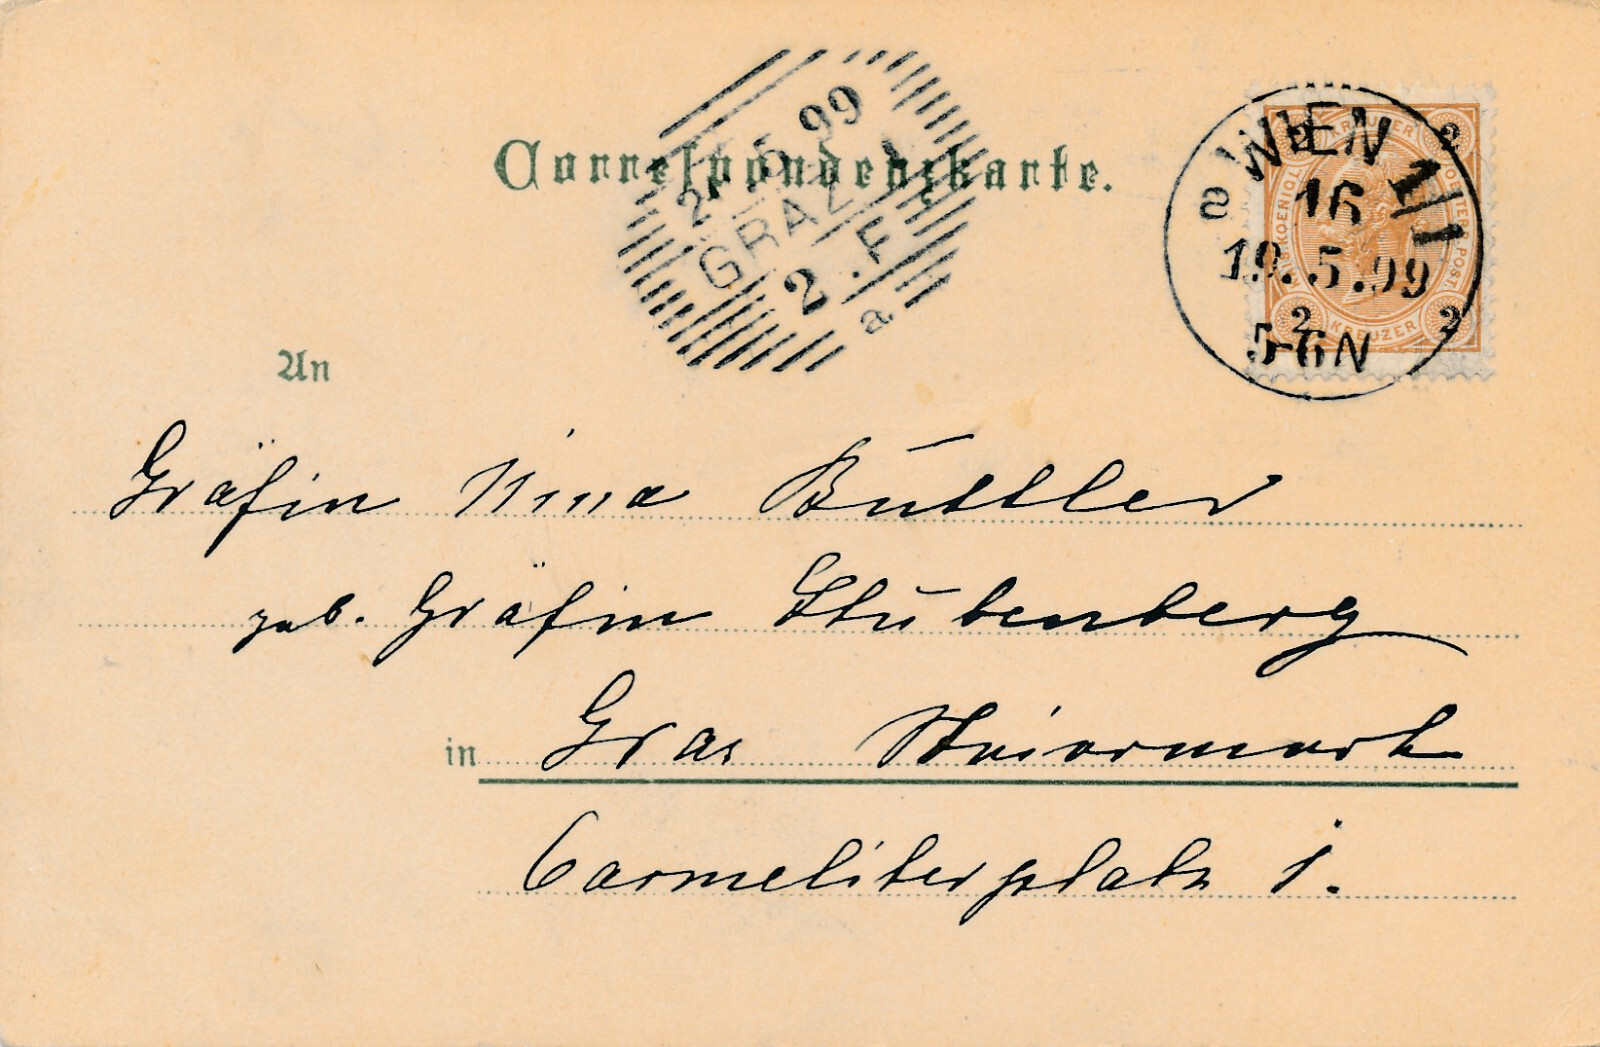 Correspondenzkarte.
99
GRAZ
2 . F
a
WIEN 1/1
16
19.5.99
5-6N
2 KREUZER 2
2 KREUZER 2
An
Gräfin Nina Buttler
geb. Gräfin Stubenberg
in Graz Steiermark
Carmeliterplatz 1.